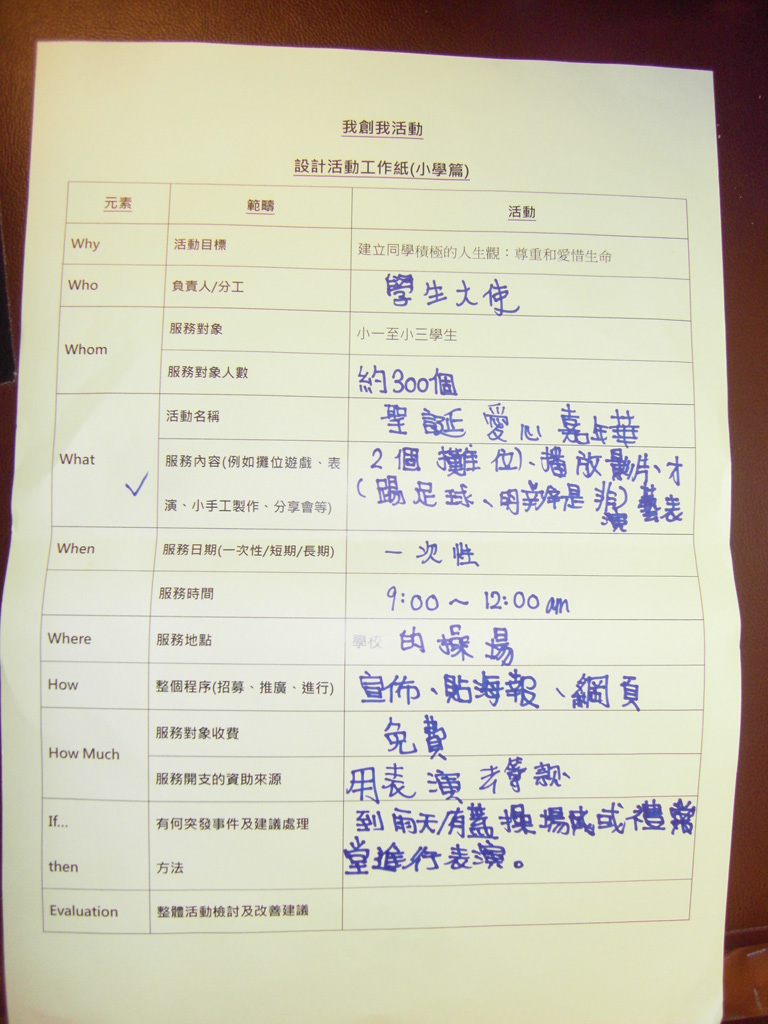 我創我活動
設計活動工作紙(小學篇)
元素 範疇 活動
Why 活動目標 建立同學積極的人生觀：尊重和愛惜生命
Who 負責人/分工 學生大使
Whom 服務對象 小一至小三學生
服務對象人數 約300個
What 活動名稱 聖誕愛心嘉年華
服務內容(例如攤位遊戲、表 2個攤位)、播放影片、才
演、小手工製作、分享會等) (踢足球、明辨是非) 藝表
演
When 服務日期(一次性/短期/長期) 一次性
服務時間 9:00～12:00am
Where 服務地點 學校 的操場
How 整個程序(招募、推廣、進行) 宣佈、貼海報、網頁
How Much 服務對象收費 免費
服務開支的資助來源 用表演 籌款
If... 有何突發事件及建議處理 到雨天/有蓋操場 或禮
then 方法 堂進行表演。
Evaluation 整體活動檢討及改善建議